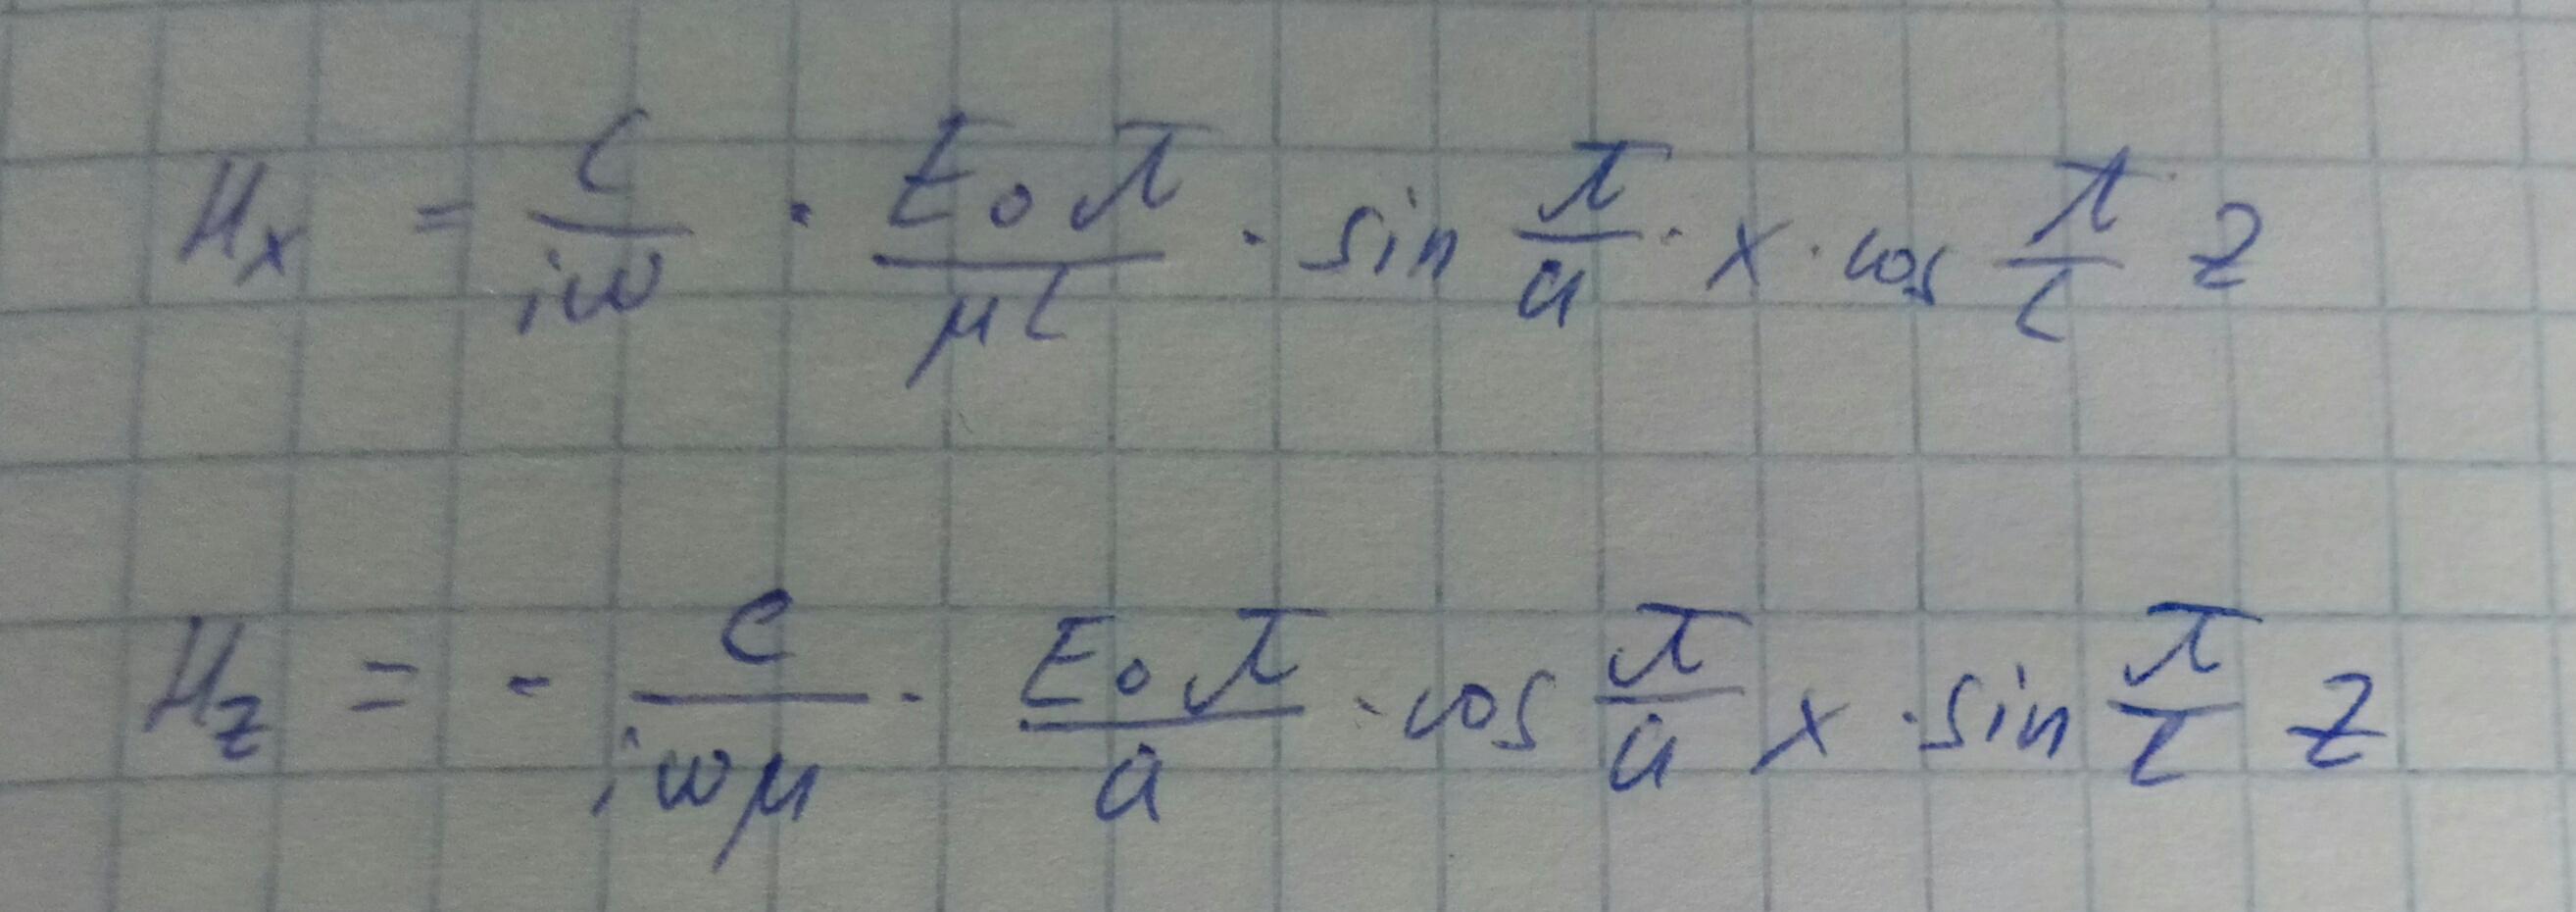 Hx = c/iω · E₀π/μL · sin π/a · x · cos π/L z
Hz = - c/iωμ · E₀π/a · cos π/a x · sin π/L z